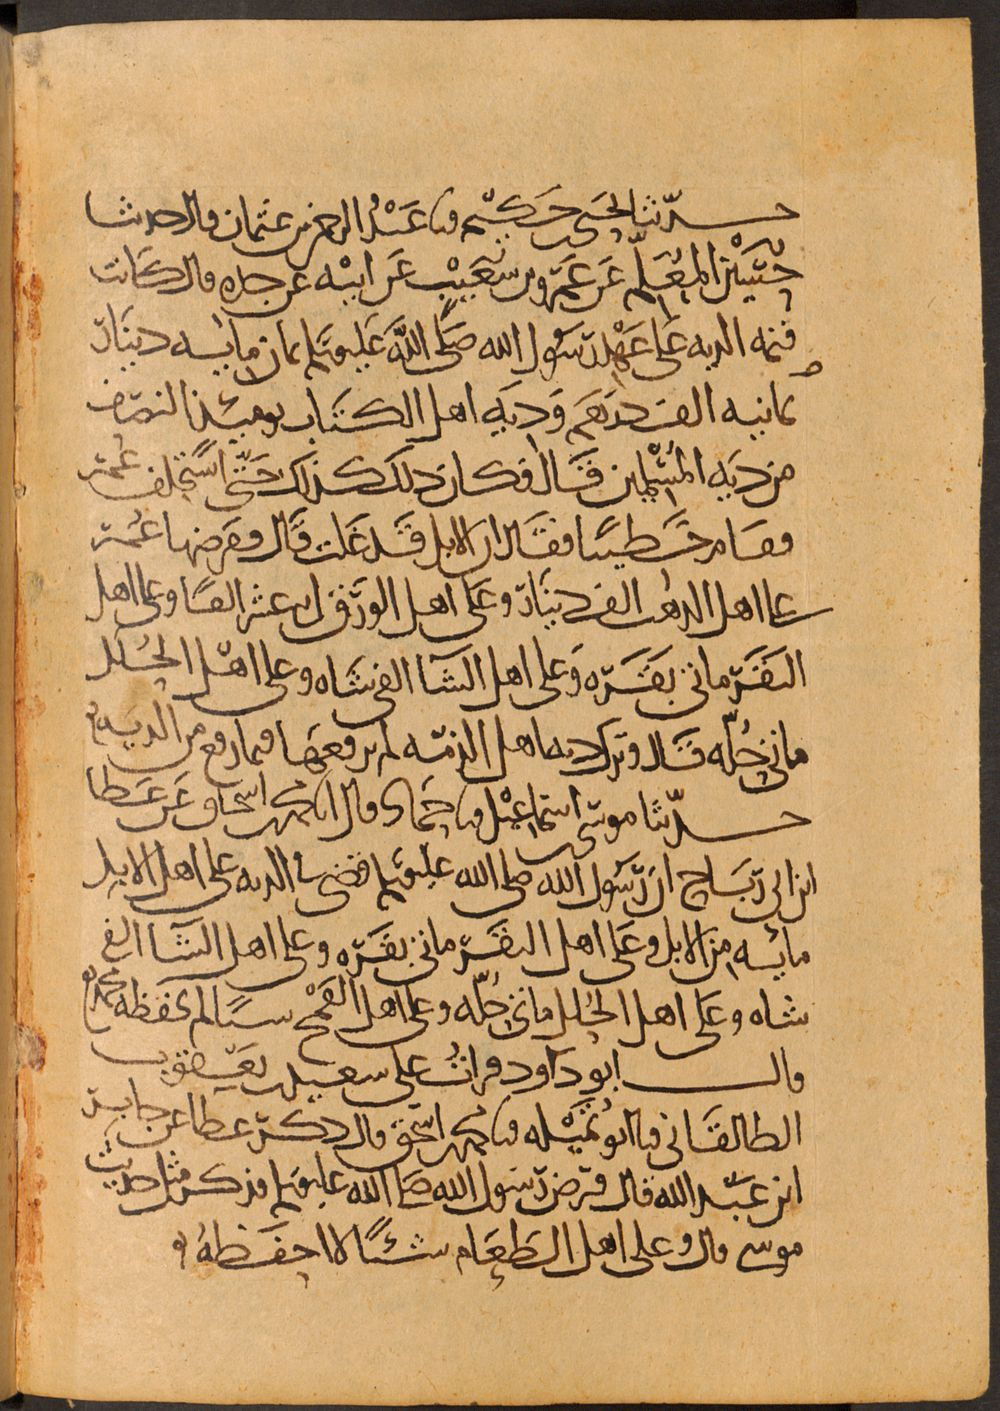 حدثنا يحيى بن حكيم نا عبد الرحمن بن عثمان قال حدثنا
حسين المعلم عن عمرو بن شعيب عن ابيه عن جده قال كانت
قيمه الديه على عهد رسول الله صلى الله عليه وسلم ثمان مايه دينار
ثمانيه الف درهم وديه اهل الكتاب يوميذ النصف
من ديه المسلمين قال فكان ذلك كذلك حتى استخلف عمر
فقام خطيبا فقال ان الابل قد غلت قال وفرضها عمر
على اهل الذهب الف دينار وعلى اهل الورق اثني عشر الفا وعلى اهل
البقر ماتي بقره وعلى اهل الشا الفي شاه وعلى اهل الحلل
ماتي حله قال وترك ديه اهل الذمه لم يرفعها فيما رفع من الديه
حدثنا موسى بن اسماعيل نا حماد قال انا محمد بن اسحاق عن عطا
ابن ابي رباح ان رسول الله صلى الله عليه وسلم قضى في الديه على اهل الابل
مايه من الابل وعلى اهل البقر ماتي بقره وعلى اهل الشا الفي
شاه وعلى اهل الحلل ماتي حله وعلى اهل القمح شيا لم يحفظه محمد
قال ابو داود قرات على سعيد بن يعقوب
الطالقاني نا ابو تميله نا محمد بن اسحق قال ذكر عطا عن جابر
ابن عبد الله قال فرض رسول الله صلى الله عليه وسلم فذكر مثل حديث
موسى قال وعلى اهل الطعام شئا لا احفظه